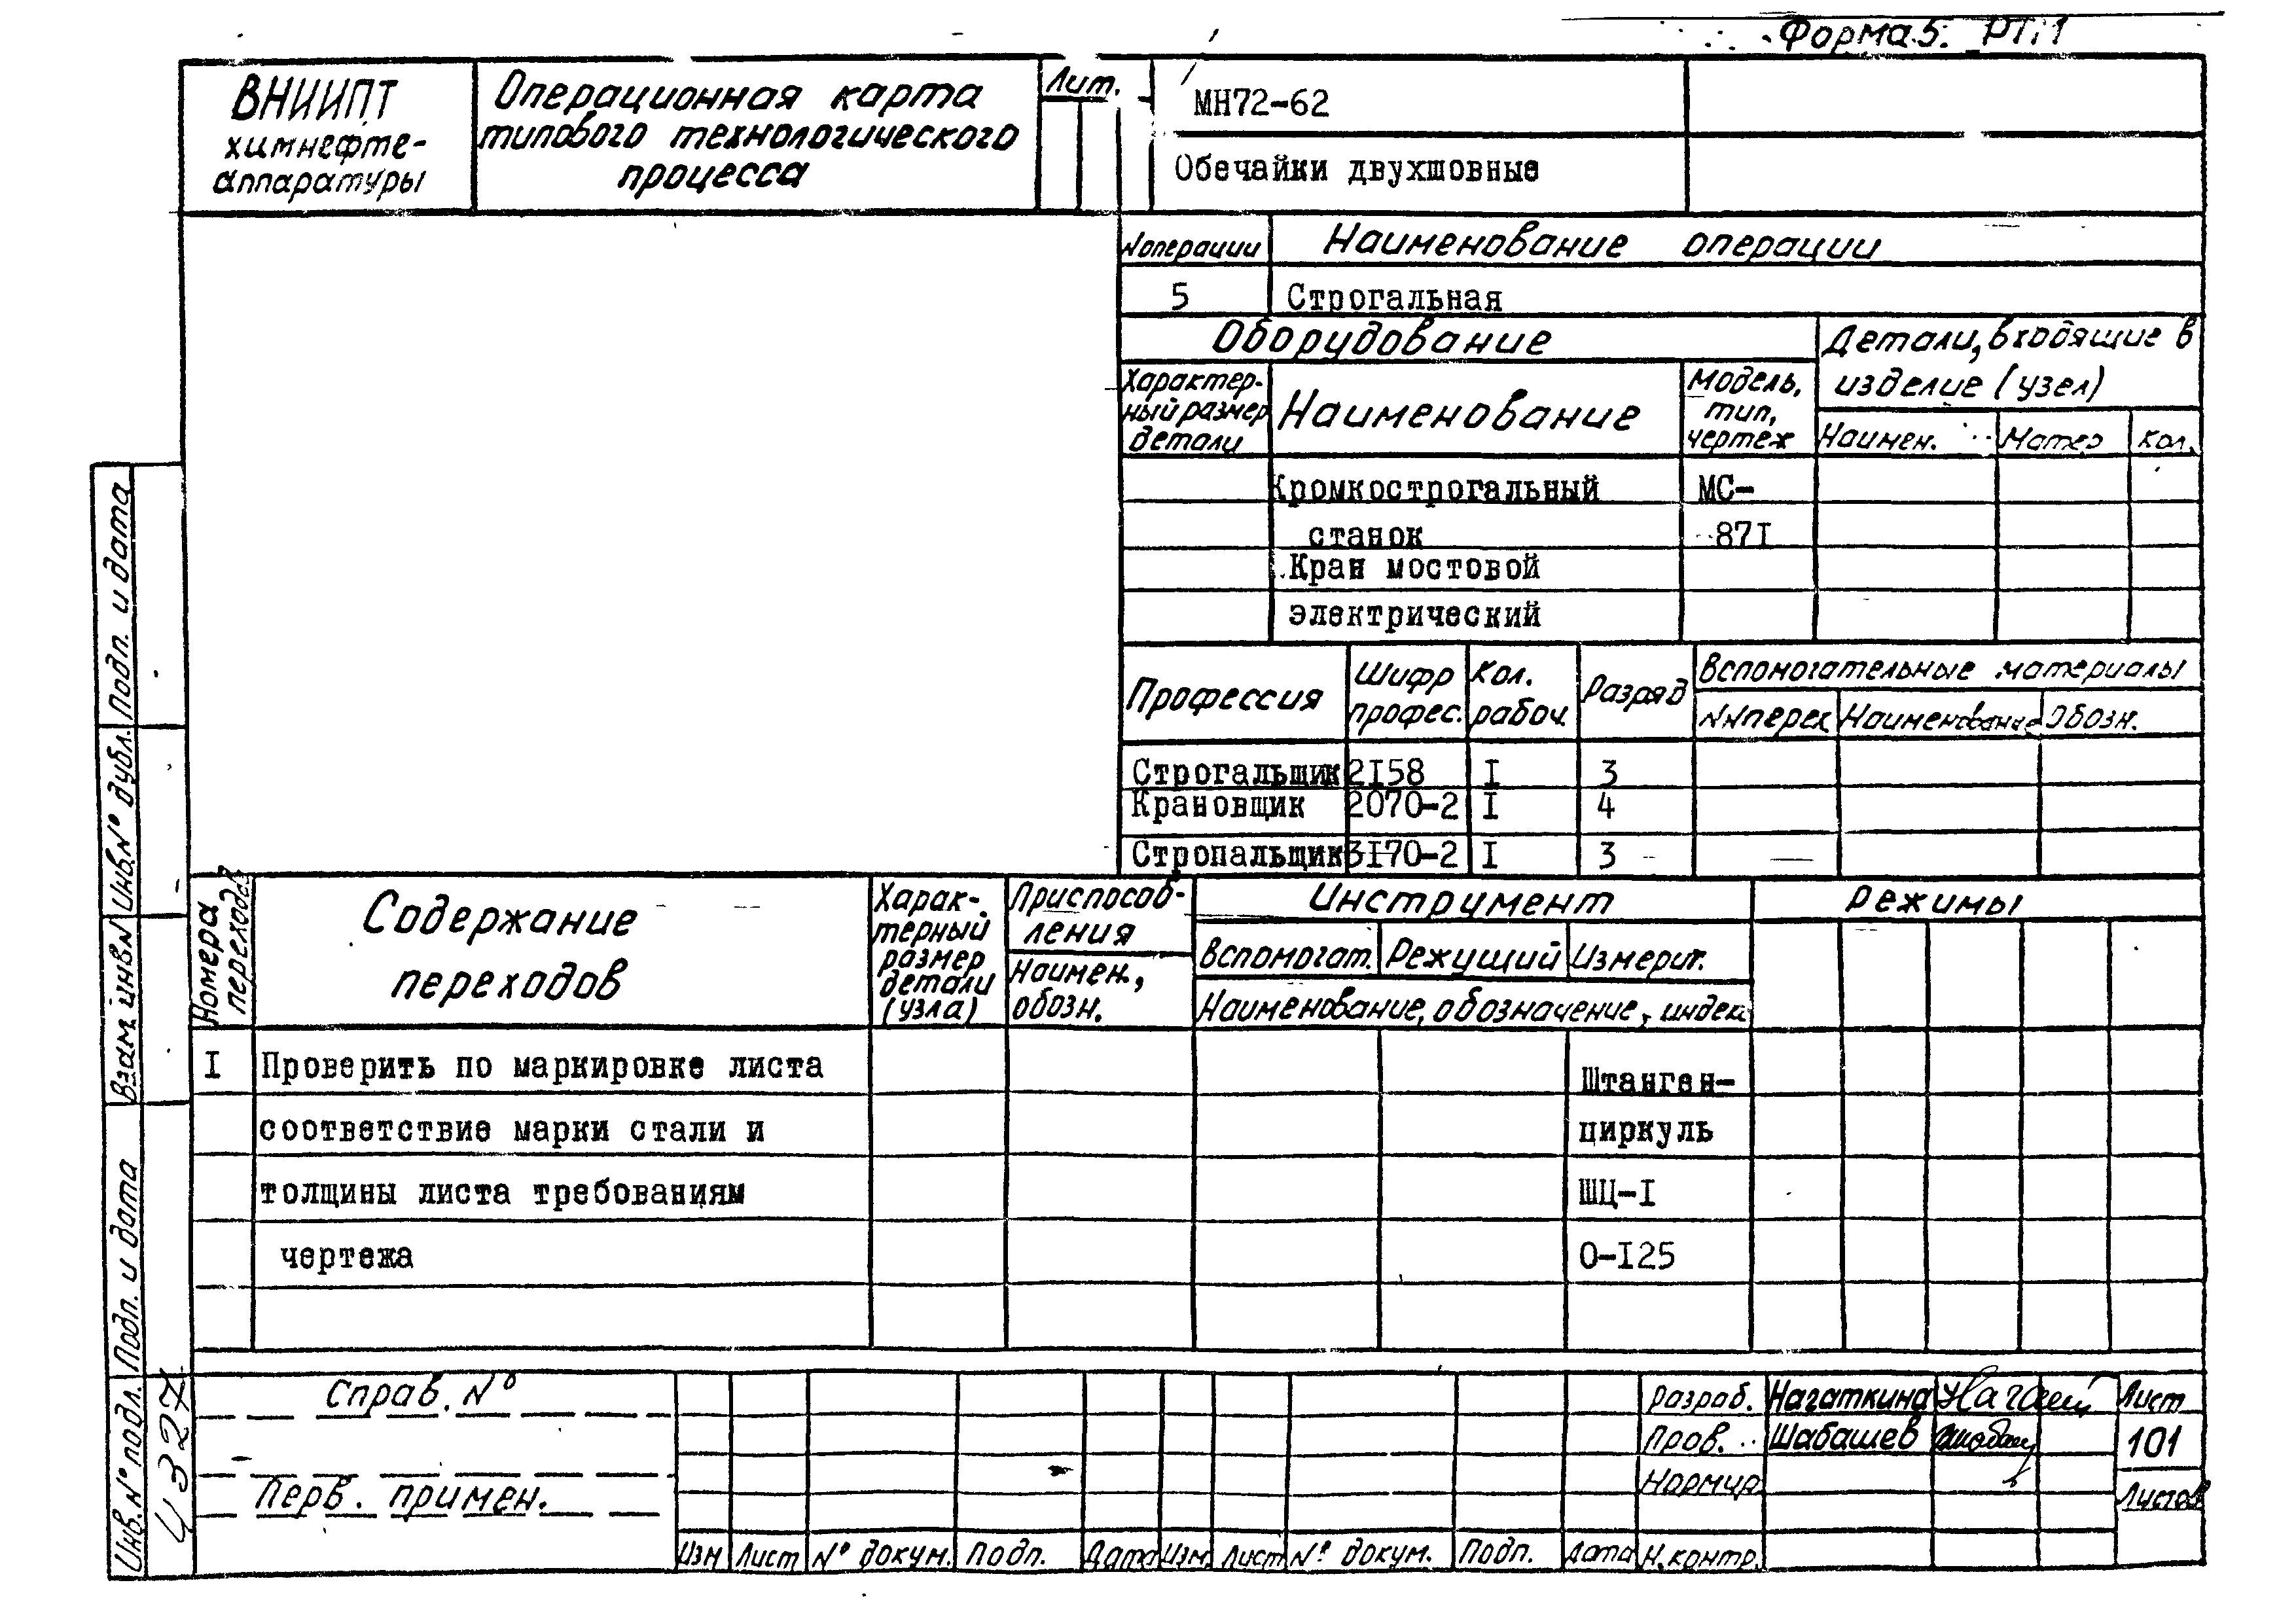 Форма 5. РТ:1
ВНИИПТ
химнефте-
аппаратуры
Операционная карта
типового технологического
процесса
Лит.
МН72-62
Обечайки двухшовные
№операции
Наименование операции
5
Строгальная
Оборудование
Детали, входящие в
изделие (узел)
Характер-
ный размер
детали
Наименование
Модель,
тип,
чертеж
Наимен.
Матер
Кол.
Кромкострогальный
МС-
станок
87I
Кран мостовой
электрический
Профессия
Шифр
профес.
Кол.
рабоч.
Разряд
Вспомогательные материалы
NNперех
Наименование
Обозн.
Строгальщик 2I58 I 3
Крановщик 2070-2 I 4
Стропальщик 3I70-2 I 3
Номера
переходов
Содержание
переходов
Харак-
терный
размер
детали
(узла)
Приспособ-
ления
Наимен.,
обозн.
Инструмент
Вспомогат.
Режущий
Измерит.
Наименование, обозначение, индек
Режимы
I Проверить по маркировке листа
Штанген-
соответствие марки стали и
циркуль
толщины листа требованиям
ШЦ-I
чертежа
0-I25
Справ. №
Перв. примен.
Изм
Лист
№ докум.
Подп.
Дата
Изм.
Лист
№ докум.
Подп.
Дата
Разраб. Нагаткина
Пров. Шабашев
Нормир
Н.контр.
Лист
101
Листов
Подп. и дата
Инв.№ дубл.
Взам. инв.N
Подп. и дата
Инв. № подл.
4327